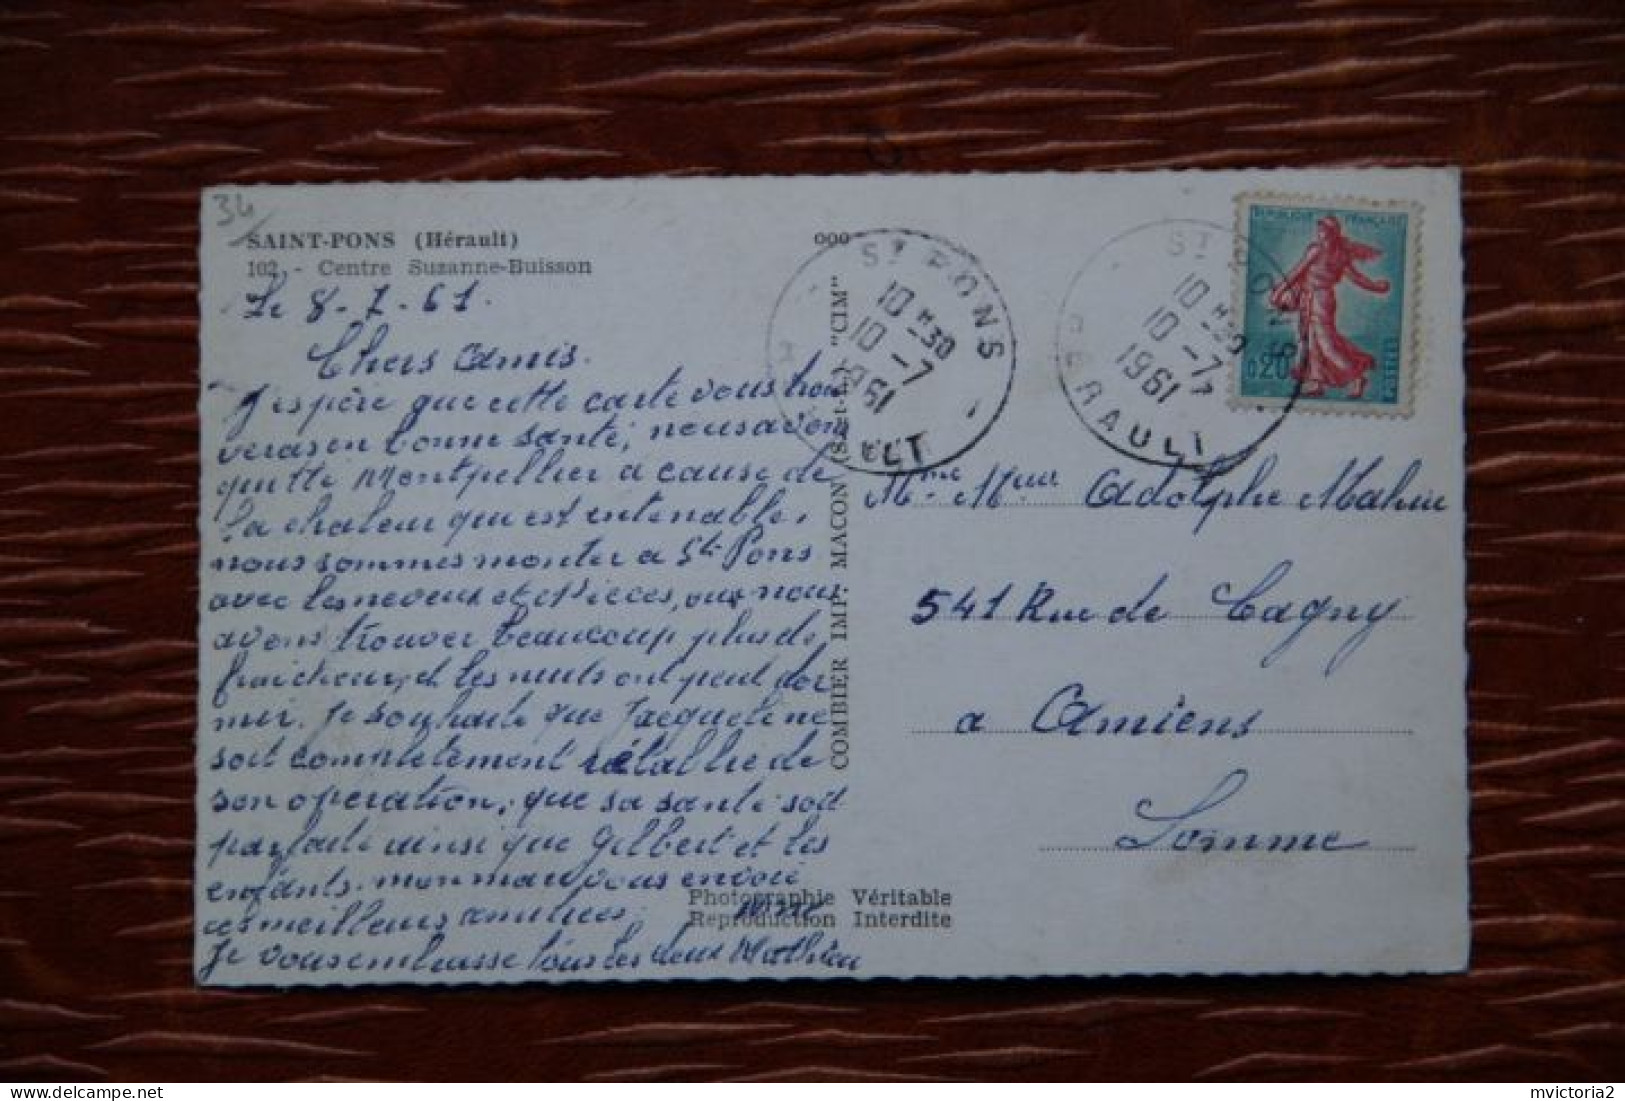 34
SAINT-PONS (Hérault)
102. - Centre Suzanne-Buisson
Le 8-7-61.
Chers amis.
J'espère que cette carte vous trou
veras en bonne santé, nous avon
quitté Montpellier a cause de
la chaleur qui est intenable,
nous sommes monter a St Pons
avec les neveux et Nieces, ou nous
avons trouver beaucoup plus de
fraicheur, et les nuits ont peut dor
mir. Je souhaite que Jacqueline
soit completement rétablie de
son operation, que sa santé soit
parfaite ainsi que Gilbert et les
enfants. mon mari vous envoie
ces meilleurs amitiées.
Je vous embrasse tous les deux Mathieu
ooo
COMBIER IMP. MACON (S.-et-L.) "CIM"
Photographie Véritable
Reproduction Interdite
ST PONS
10 H30
10 -7
1961
HERAULT
ST PONS
10 H30
10 -7
1961
HERAULT
REPUBLIQUE FRANÇAISE
0,20
POSTES
Mr Mme Adolphe Mahiu
541 Rue de Cagny
a Amiens
Somme
mvictoria2